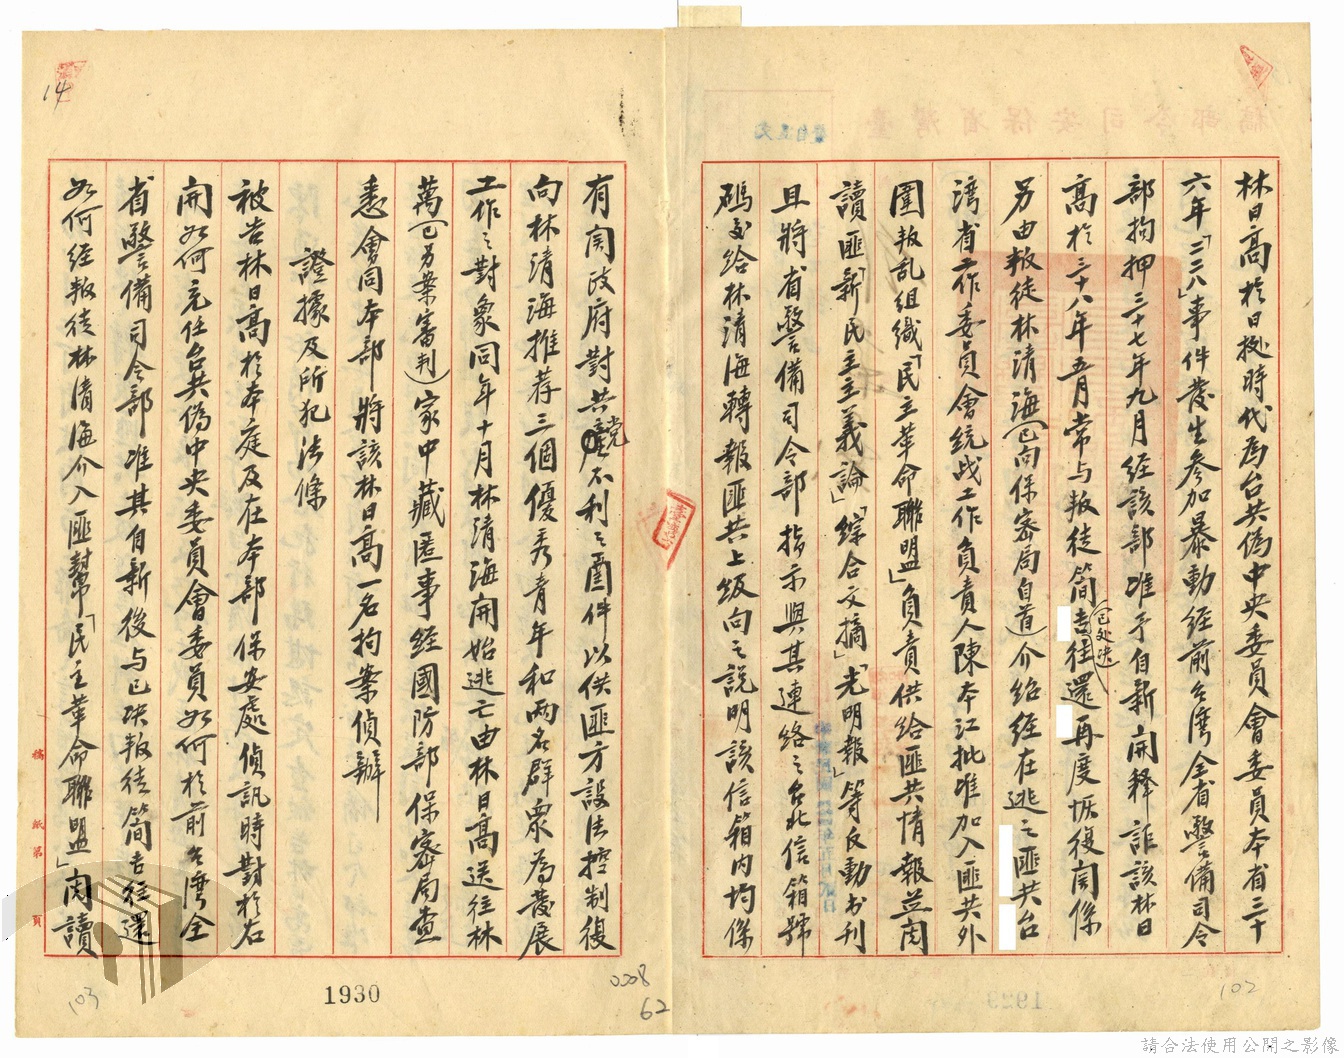 林日高於日據時代為台共偽中央委員會委員本省三十
六年「二二八」事件發生參加暴動經前台灣全省警備司令
部拘押三十七年九月經該部准予自新開釋詎該林日
高於三十八年五月常与叛徒簡吉(已处决)往還再度恢復関係
另由叛徒林清海(已向保密局自首)介紹經在逃之匪共台
灣省工作委員會統战工作負責人陳本江批准加入匪共外
圍叛乱組織「民主革命聯盟」負責供給匪共情報並閱
讀匪「新民主主義論」「綜合文摘」「光明報」等反動书刊
且將省警備司令部指示與其連絡之台北信箱號
碼交給林清海轉報匪共上級向之説明該信箱内均係
有関政府對共党不利之函件以供匪方設法控制復
向林清海推荐三個優秀青年和两名群衆為發展
工作之對象同年十月林清海開始逃亡由林日高送往林
萬(已另案審判)家中藏匿事經國防部保密局查
悉會同本部將該林日高一名拘案偵辦
證據及所犯法條
被告林日高於本庭及在本部保安處偵訊時對於右
開如何充任台共偽中央委員會委員如何於前台灣全
省警備司令部准其自新後与已决叛徒簡吉往還
如何經叛徒林清海介入匪幫「民主革命聯盟」閱讀
稿紙第 頁
14
103
1930
0008
62
102
請合法使用公開之影像